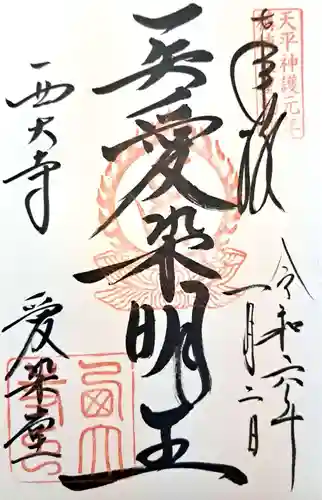 奉拝
令和六年
一月二日
天平神護元年
愛染明王
西大寺
愛染堂